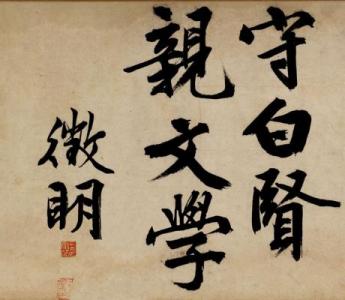 守白賢
親文學
徵明